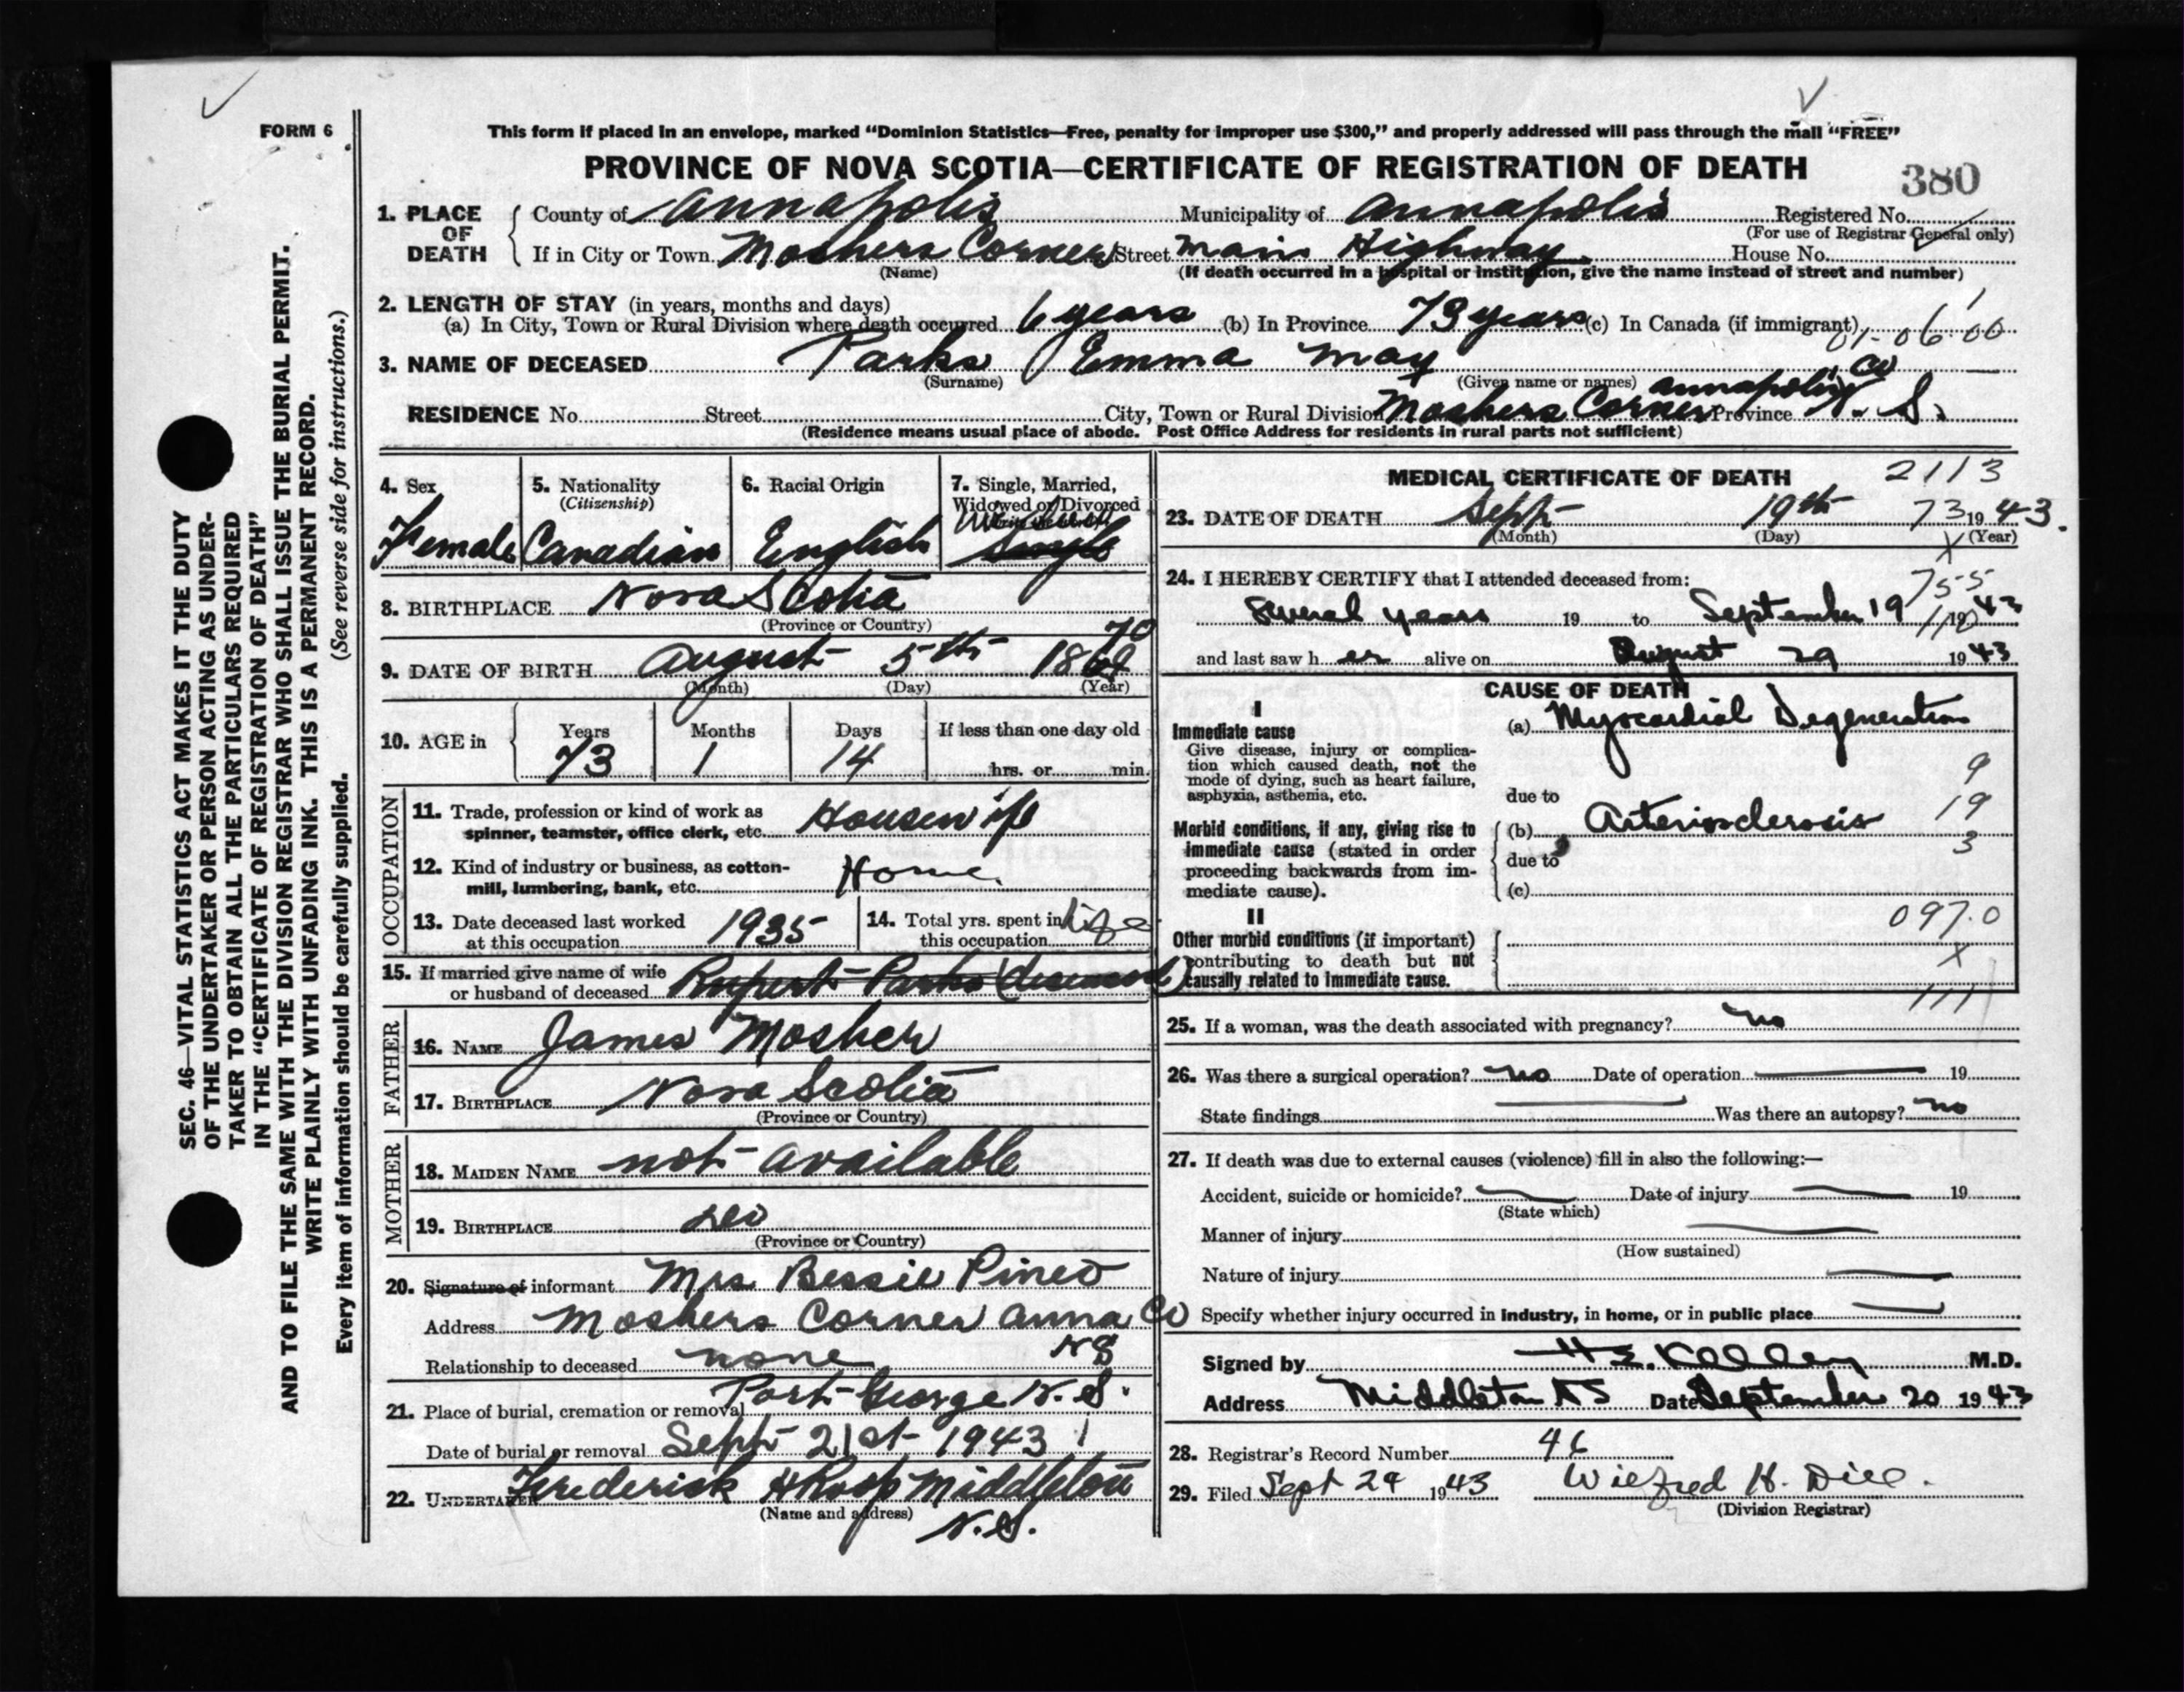 FORM 6
This form if placed in an envelope, marked "Dominion Statistics—Free, penalty for improper use $300," and properly addressed will pass through the mail "FREE"
PROVINCE OF NOVA SCOTIA—CERTIFICATE OF REGISTRATION OF DEATH
380
1. PLACE OF DEATH County of Annapolis Municipality of Annapolis Registered No.
(For use of Registrar General only)
If in City or Town Moshers Corner Street Main Highway House No.
(Name) (If death occurred in a hospital or institution, give the name instead of street and number)
2. LENGTH OF STAY (in years, months and days)
(a) In City, Town or Rural Division where death occurred 6 years (b) In Province 73 years (c) In Canada (if immigrant)
01-06-00
3. NAME OF DECEASED Parks Emma May
(Surname) (Given name or names) Annapolis Co
RESIDENCE No. Street City, Town or Rural Division Moshers Corner Province N. S.
(Residence means usual place of abode. Post Office Address for residents in rural parts not sufficient)
SEC. 46—VITAL STATISTICS ACT MAKES IT THE DUTY
OF THE UNDERTAKER OR PERSON ACTING AS UNDER-
TAKER TO OBTAIN ALL THE PARTICULARS REQUIRED
IN THE "CERTIFICATE OF REGISTRATION OF DEATH"
AND TO FILE THE SAME WITH THE DIVISION REGISTRAR WHO SHALL ISSUE THE BURIAL PERMIT.
WRITE PLAINLY WITH UNFADING INK. THIS IS A PERMANENT RECORD.
Every item of information should be carefully supplied. (See reverse side for instructions.)
4. Sex 5. Nationality 6. Racial Origin 7. Single, Married,
(Citizenship) Widowed or Divorced
Female Canadian English Single
8. BIRTHPLACE Nova Scotia
(Province or Country)
70
9. DATE OF BIRTH August 5th 1869
(Month) (Day) (Year)
10. AGE in Years Months Days If less than one day old
73 1 14 hrs. or min.
OCCUPATION
11. Trade, profession or kind of work as
spinner, teamster, office clerk, etc. Housewife
12. Kind of industry or business, as cotton-
mill, lumbering, bank, etc. Home.
13. Date deceased last worked
at this occupation 1935
14. Total yrs. spent in
this occupation Life
15. If married give name of wife
or husband of deceased Rupert Parks (deceased)
FATHER
16. NAME James Mosher
17. BIRTHPLACE Nova Scotia
(Province or Country)
MOTHER
18. MAIDEN NAME not available
19. BIRTHPLACE do
(Province or Country)
20. Signature of informant Mrs Bessie Pineo
Address Moshers Corner Anna Co
NS
Relationship to deceased none
21. Place of burial, cremation or removal Port George N. S.
Date of burial or removal Sept 21st 1943
22. UNDERTAKER Frederick H Roop Middleton
(Name and address) N.S.
MEDICAL CERTIFICATE OF DEATH 2113
23. DATE OF DEATH Sept 19th 73 1943.
(Month) (Day) (Year)
24. I HEREBY CERTIFY that I attended deceased from: 755
several years 19 to September 19 1943
and last saw her alive on August 29 1943
CAUSE OF DEATH
I
Immediate cause (a) Myocardial Degeneration
Give disease, injury or complica-
tion which caused death, not the
mode of dying, such as heart failure,
asphyxia, asthenia, etc.
9
due to
19
Morbid conditions, if any, giving rise to (b) Arteriosclerosis
immediate cause (stated in order
3
proceeding backwards from im- due to
mediate cause). (c)
II
097.0
Other morbid conditions (if important)
contributing to death but not X
causally related to immediate cause.
111
25. If a woman, was the death associated with pregnancy? no
26. Was there a surgical operation? no Date of operation 19
State findings Was there an autopsy? no
27. If death was due to external causes (violence) fill in also the following:—
Accident, suicide or homicide? Date of injury 19
(State which)
Manner of injury
(How sustained)
Nature of injury
Specify whether injury occurred in industry, in home, or in public place
Signed by H E. Kelley M.D.
Address Middleton NS Date September 20 1943
28. Registrar's Record Number 46
29. Filed Sept 29 1943 Wilfred H. Dill.
(Division Registrar)